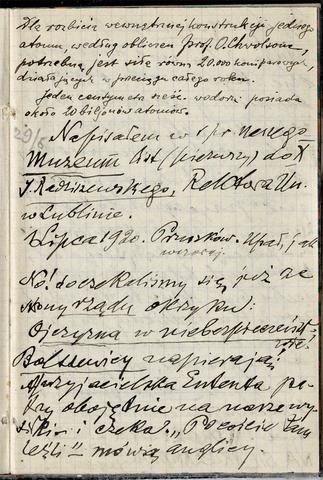 Dla rozbicia wewnętrznej konstrukcji jednego
atomu, według obliczeń prof. O. Chwolsona,
potrzebną jest siła równ 20.000 koni parowych,
działających w przeciągu całego roku.
Jeden centymetr sześc. wodoru posiada
około 20 biljonów atomów.
29/6
Napisałem w spr nowego
Muzeum list (pierwszy) do X
J. Radziszewskiego, Rektora Un.
w Lublinie.
1 Lipca 1920. Pruszków. Upał, jak
wczoraj.
No! doczekaliśmy się już ze
strony rządu okrzyku:
Ojczyzna w niebezpieczeńst-
wie!
Bolszewicy napierają,
A przyjacielska Ententa pa-
trzy obojętnie na nasze wy-
siłki i czeka. „Poco ście tam
leźli"! mówią anglicy.